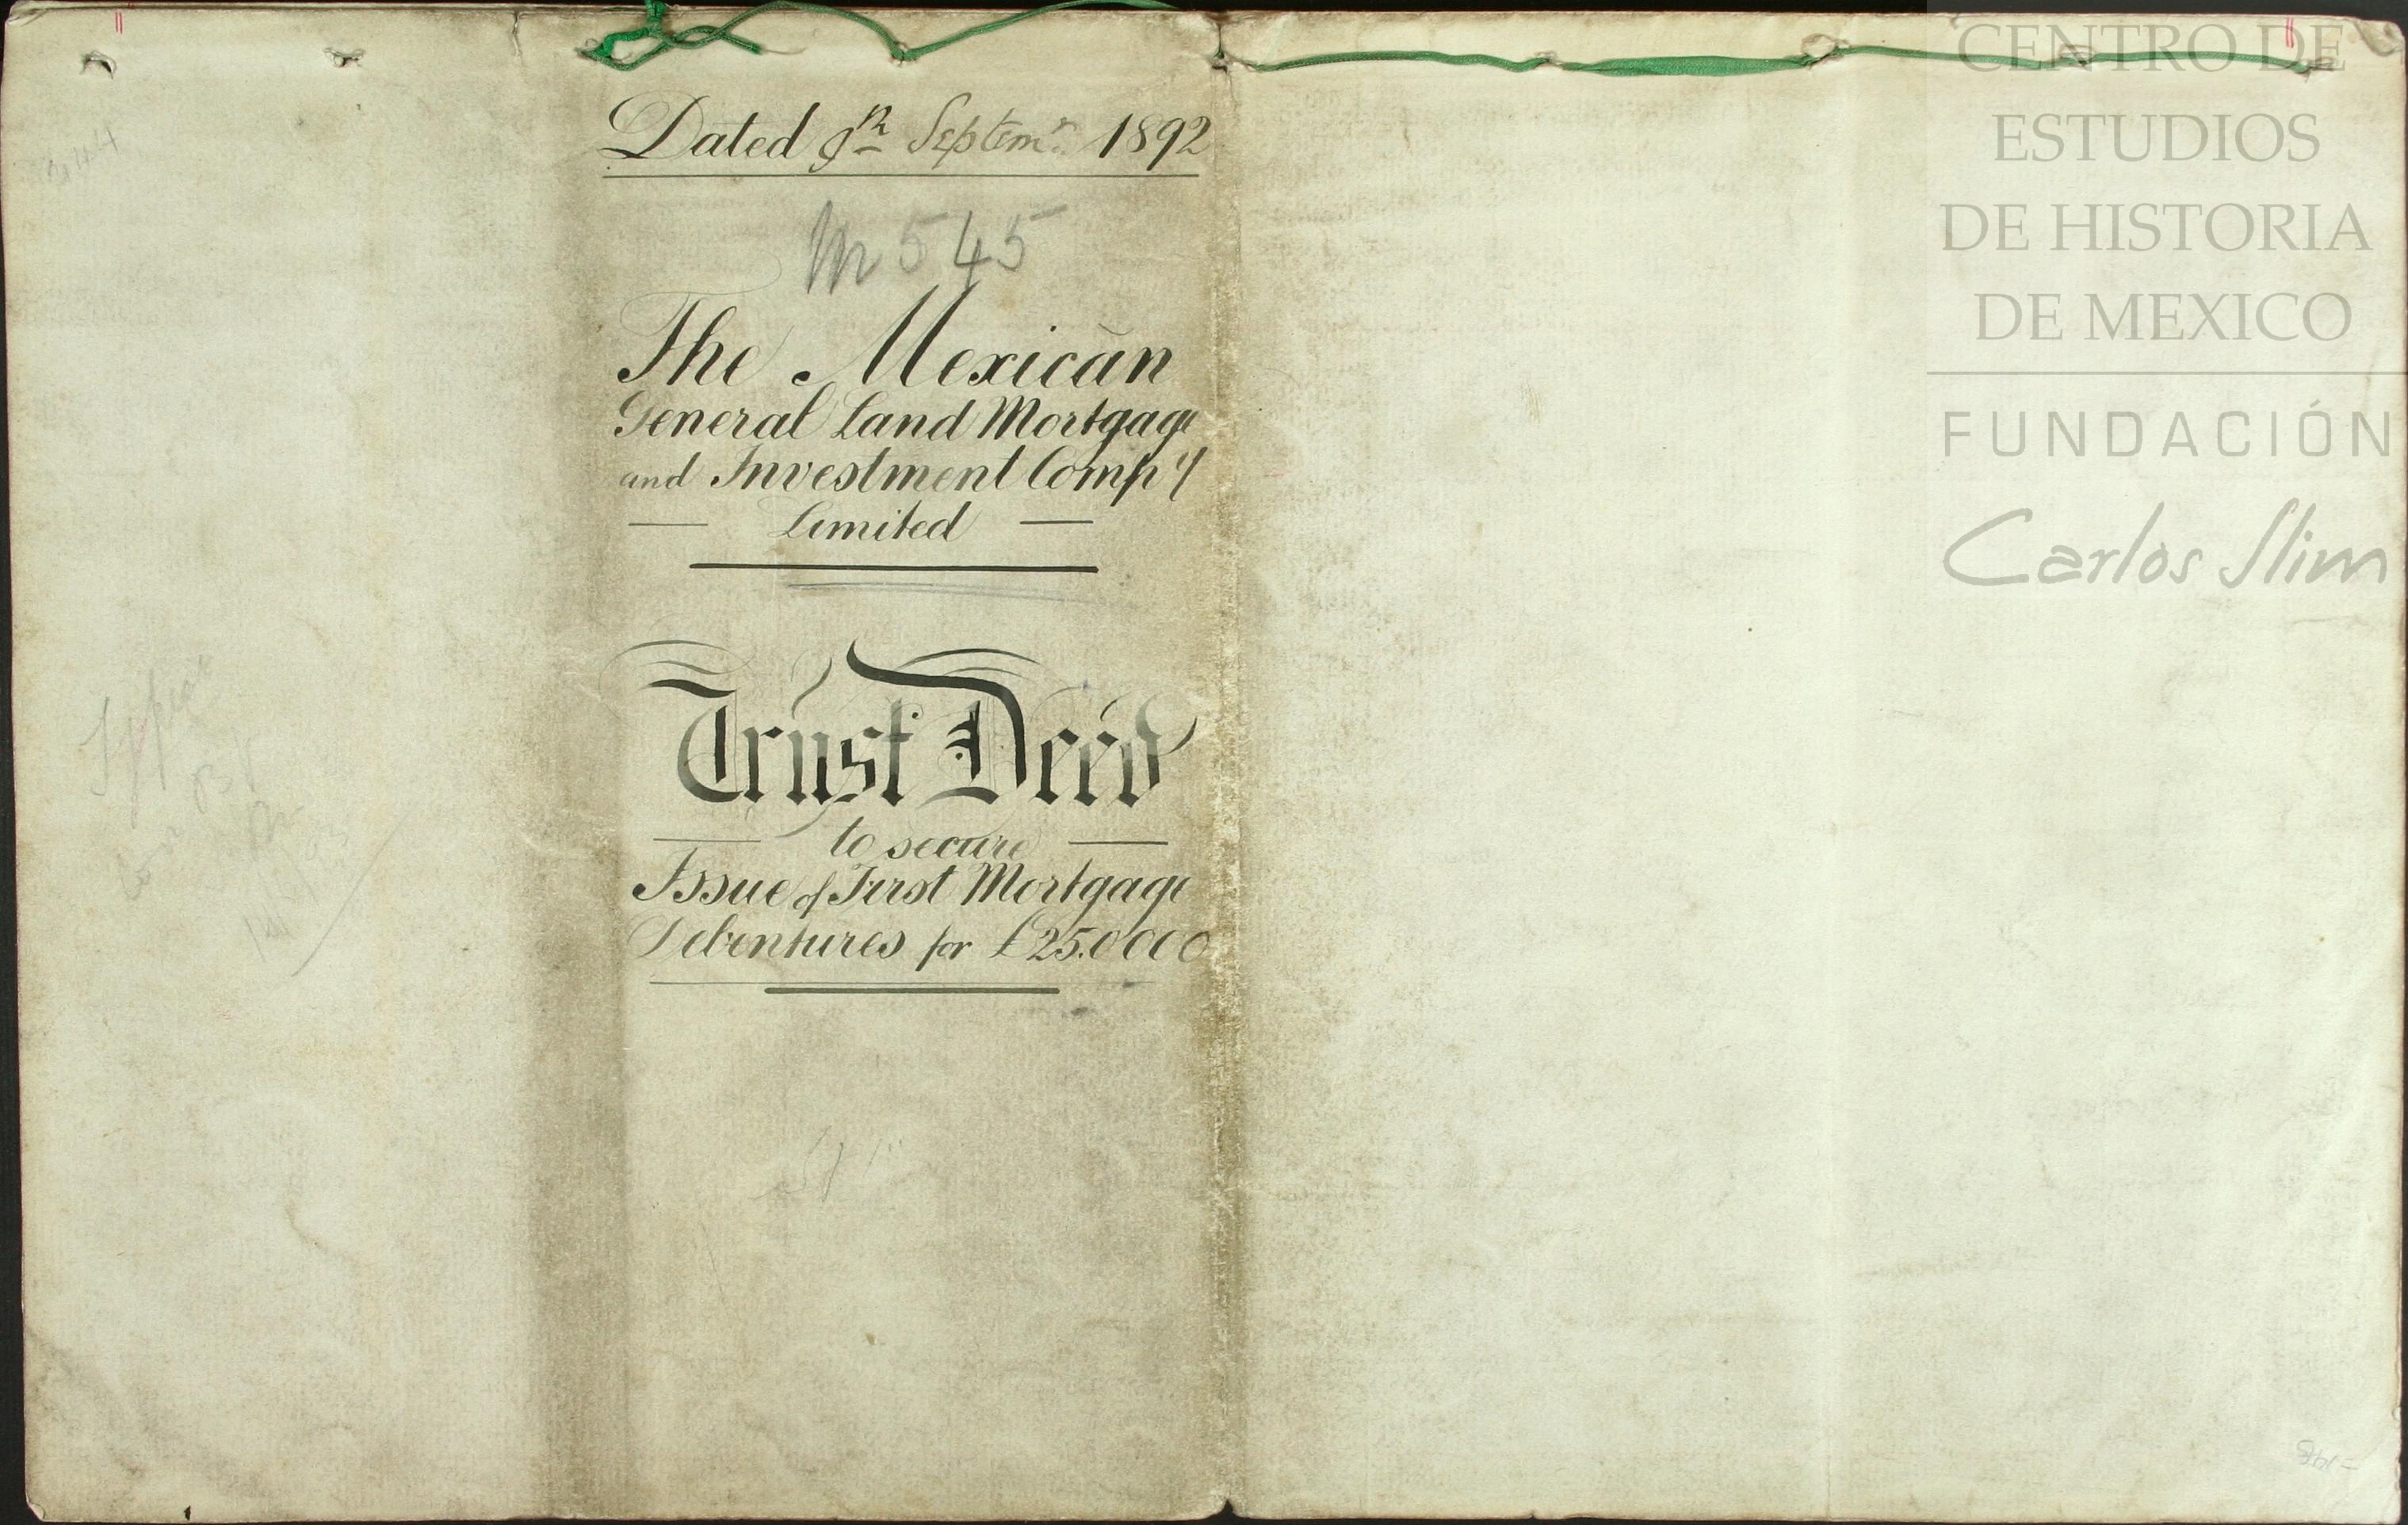 Dated 9th Septemr 1892
M 545
The Mexican
General Land Mortgage
and Investment Compy
Limited
Trust Deed
to secure
Issue of First Mortgage
Debentures for £25.0000
CENTRO DE
ESTUDIOS
DE HISTORIA
DE MEXICO
FUNDACIÓN
Carlos Slim